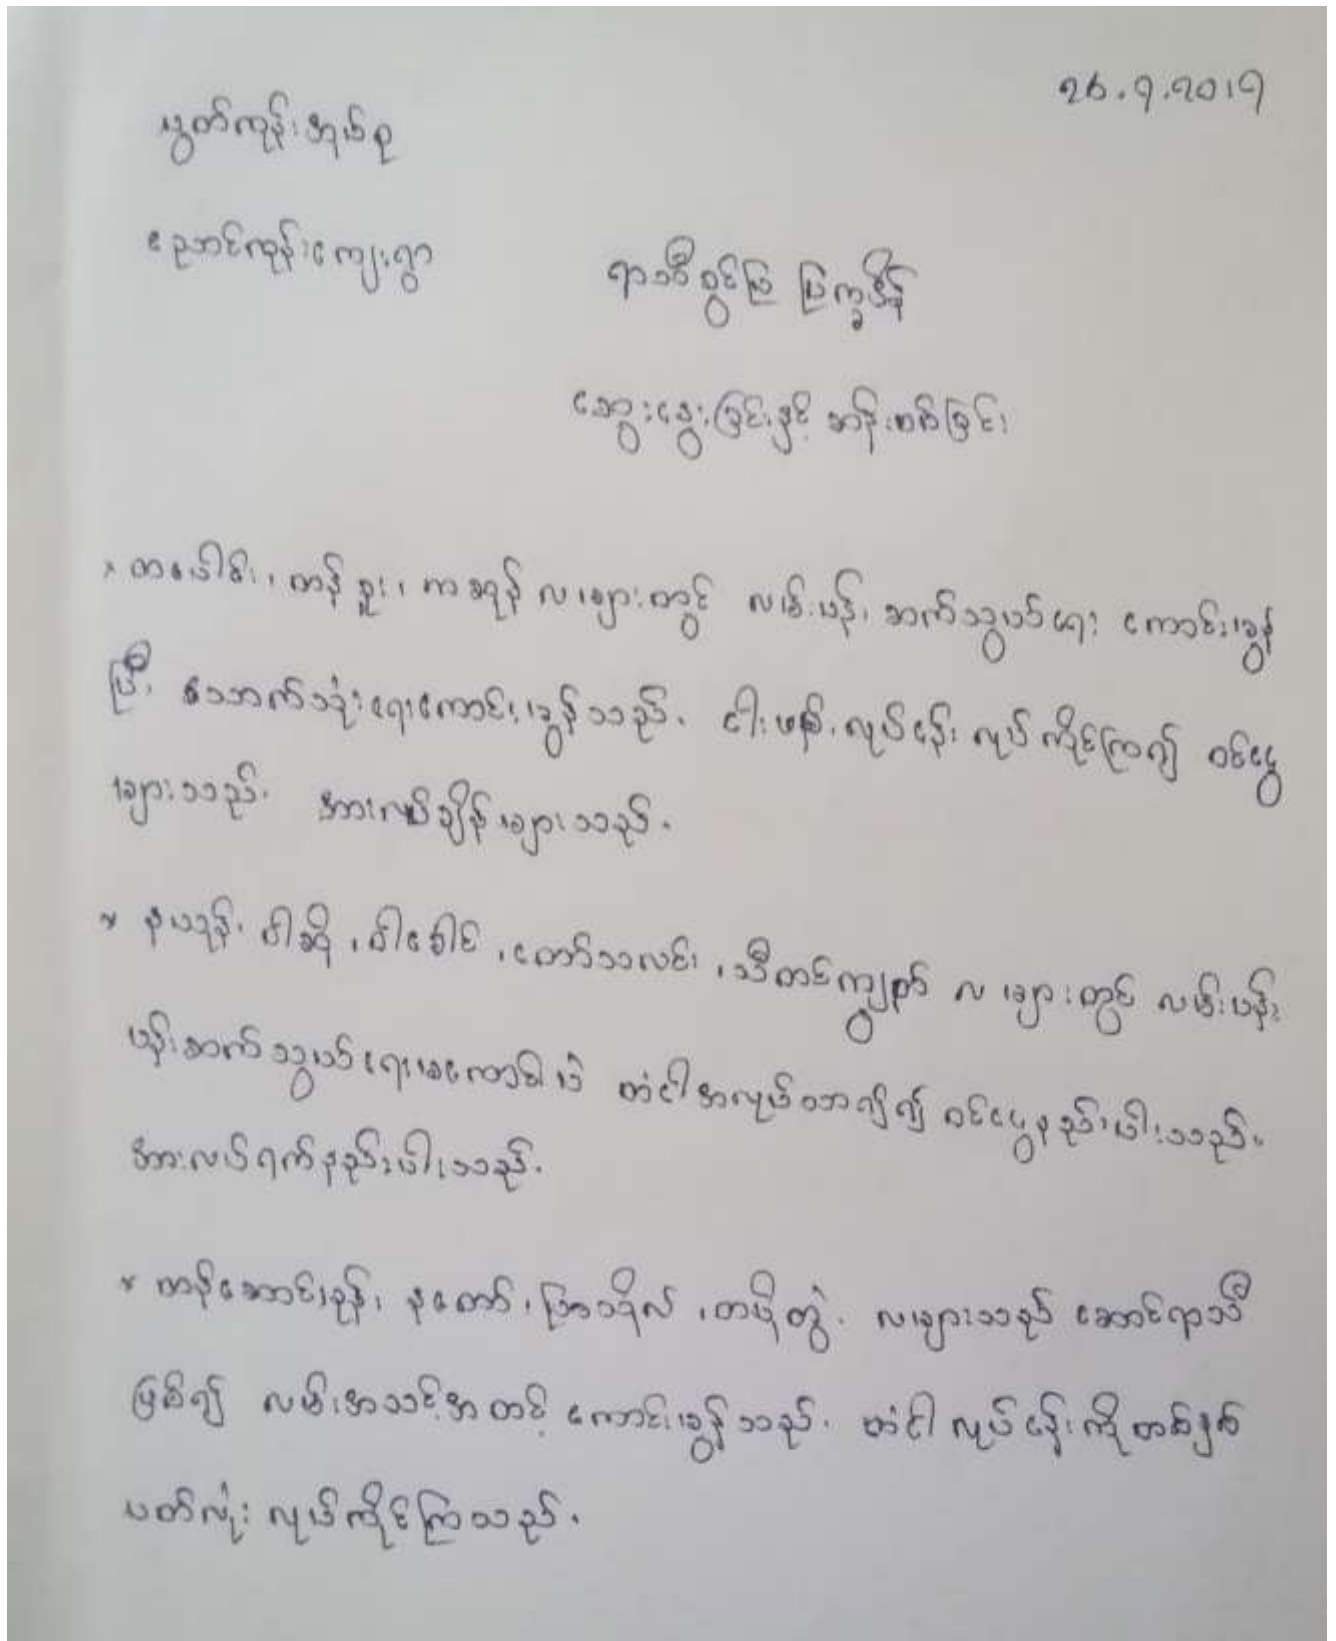 26.9.2019
မွတ်ကုန်းအုပ်စု
ညောင်ကုန်းကျေးရွာ
ရာသီခွင်ပြ ပြက္ခဒိန်
ဆွေးနွေးခြင်းနှင့် ဆန်းစစ်ခြင်း
* တပေါင်း၊ တန်ခူး၊ ကဆုန် လများတွင် လမ်းပန်းဆက်သွယ်ရေး ကောင်းမွန်
ပြီး သောက်သုံးရေကောင်းမွန်သည်. ငါးဖမ်းလုပ်ငန်း လုပ်ကိုင်ကြ၍ ဝင်ငွေ
များသည်. အားလပ်ချိန်များသည်.
* နယုန်၊ ဝါဆို၊ ဝါခေါင်၊ တော်သလင်း၊ သီတင်းကျွတ် လများတွင် လမ်းပန်း
ပန်းဆက်သွယ်ရေးမကောင်းပဲ တံငါအလုပ်သာ၍၍ ဝင်ငွေနည်းပါးသည်.
အားလပ်ရက်နည်းပါးသည်.
* တန်ဆောင်မုန်း၊ နတော်၊ ပြာသိုလ်၊ တပို့တွဲ. လများသည် ဆောင်ရာသီ
ဖြစ်၍ လမ်းအသင့်အတင့် ကောင်းမွန်သည်. တံငါလုပ်ငန်းကိုတစ်နှစ်
ပတ်လုံး လုပ်ကိုင်ကြသည်.